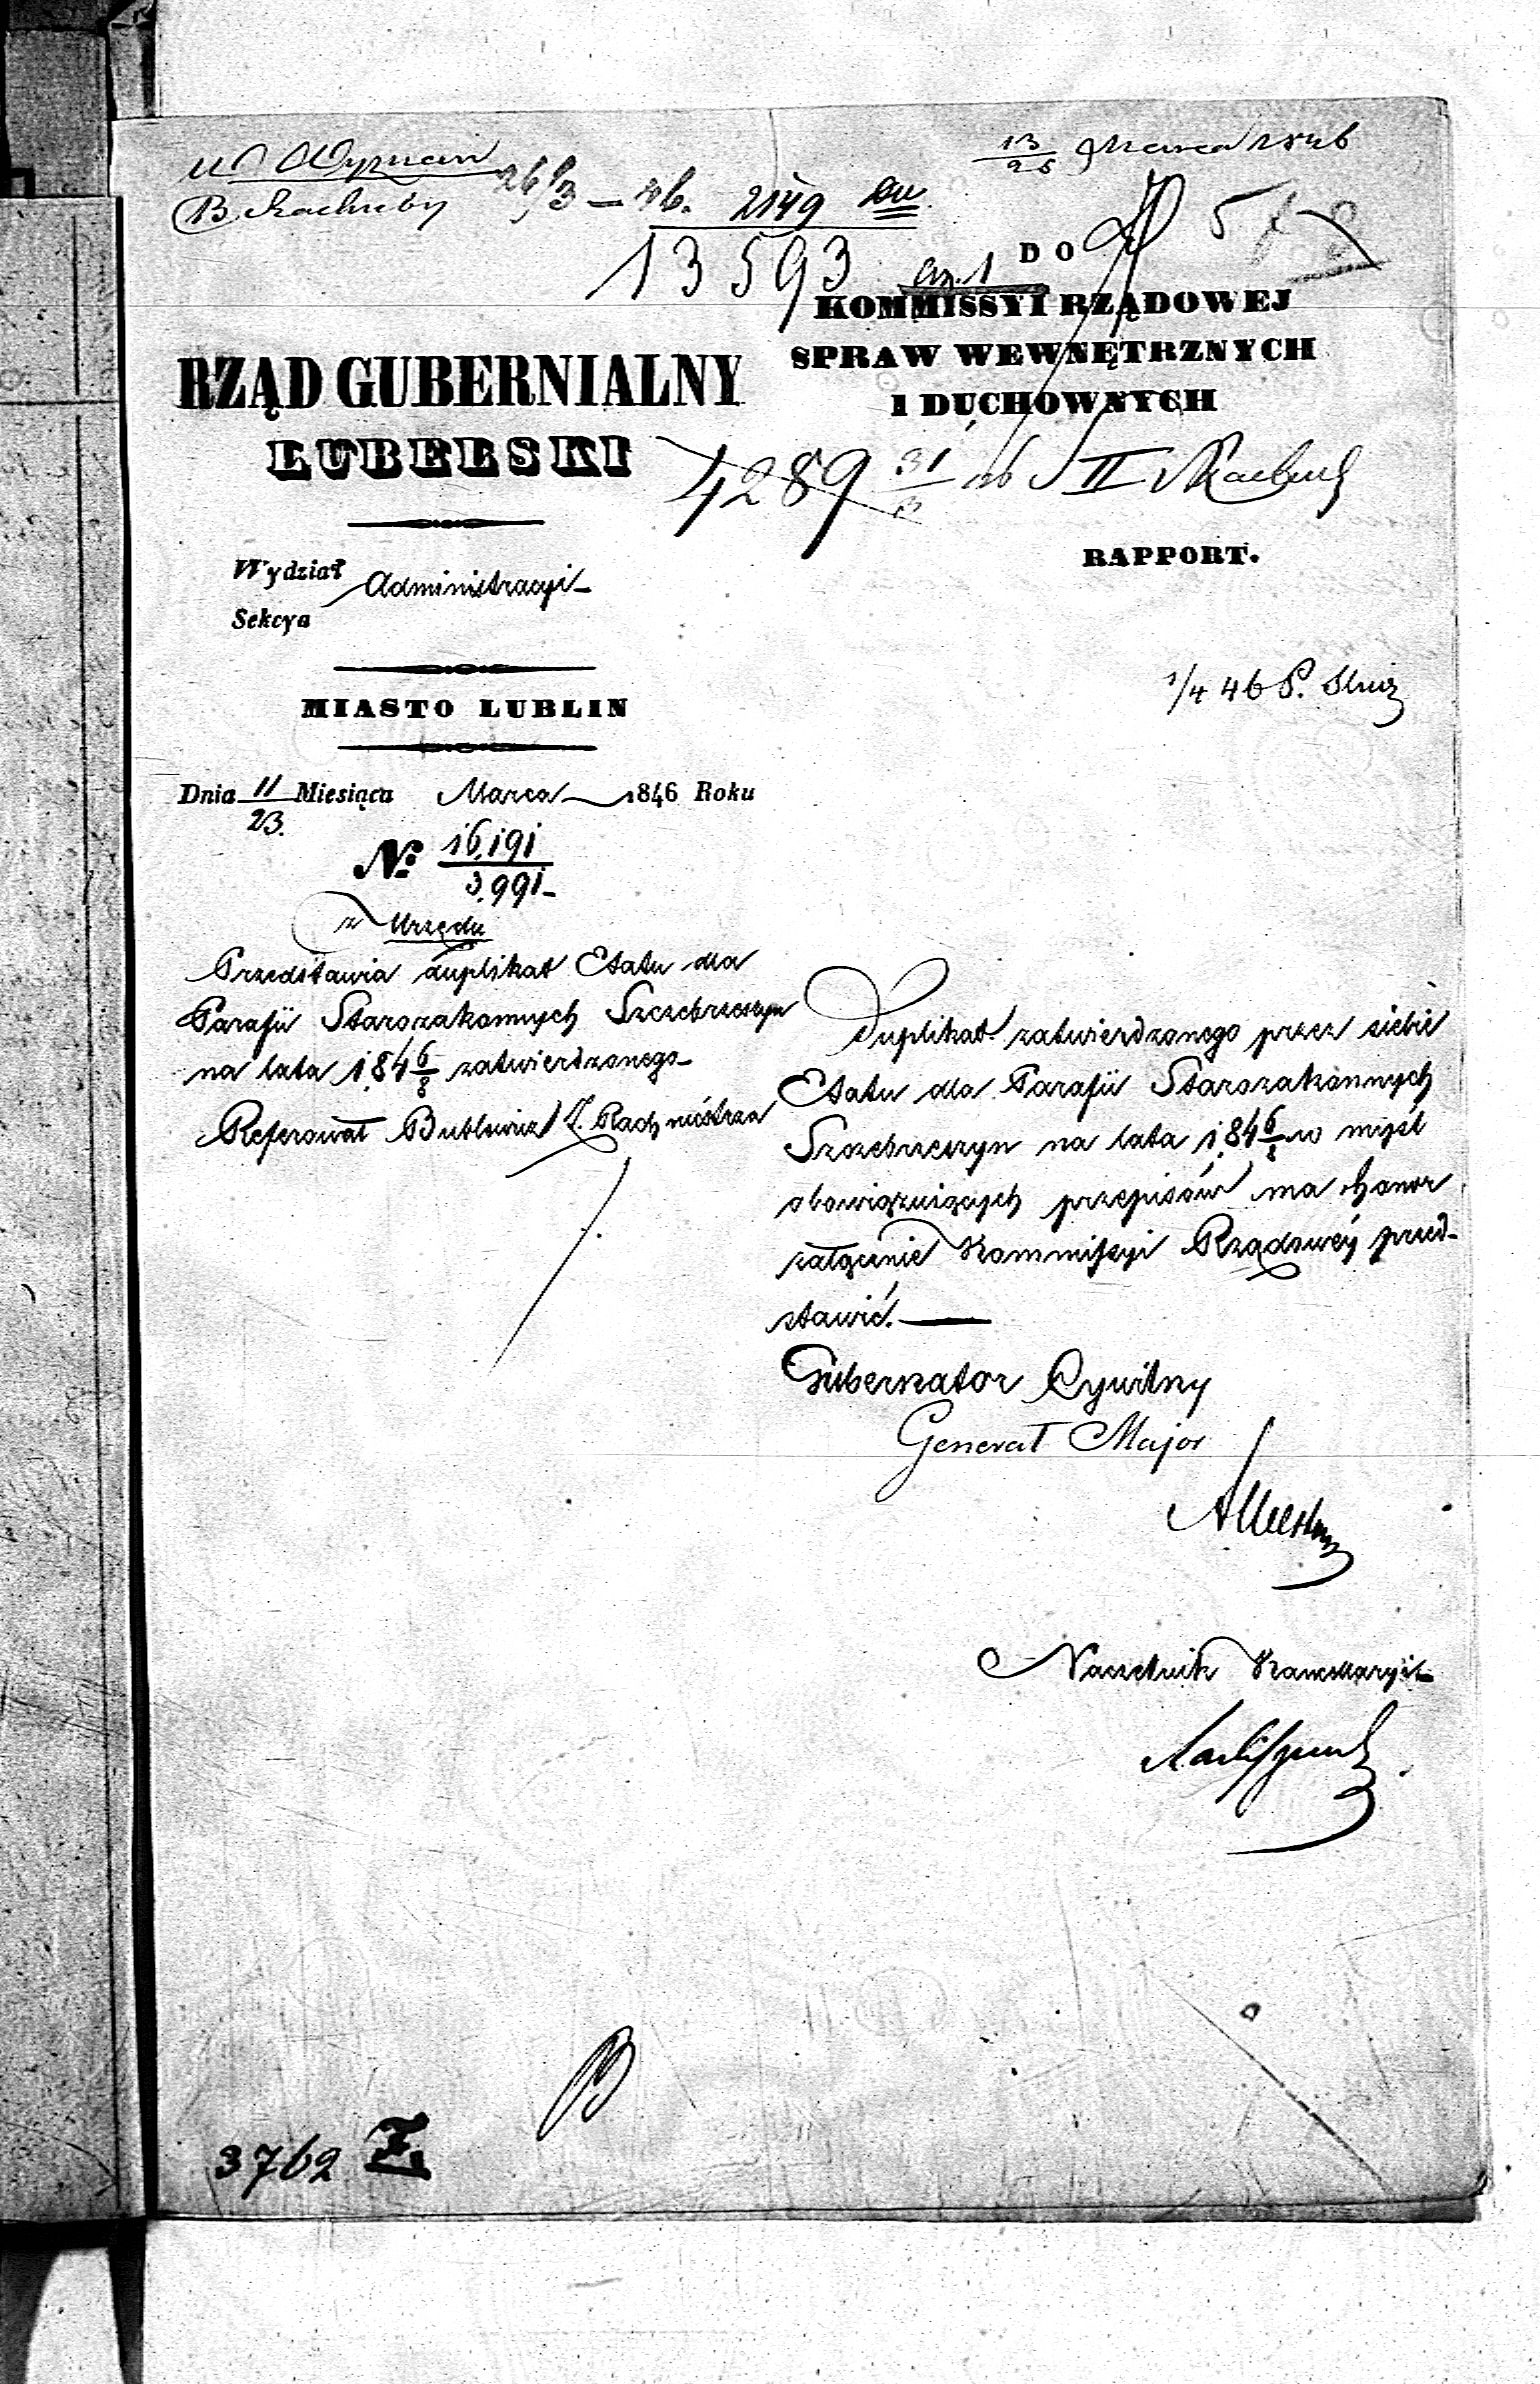 13/25 Marca 1846
26/3 – 46. 2149
13593
DO
KOMMISSYI RZĄDOWEJ
SPRAW WEWNĘTRZNYCH
I DUCHOWNYCH
4289 31/3 46 II
RAPPORT.
1/4 46
RZĄD GUBERNIALNY
LUBELSKI
Wydział Administracyi
Sekcya
MIASTO LUBLIN
Dnia 11/23. Miesiąca Marca 1846 Roku
No. 16,191/3,991
z Urzędu
Przedstawia duplikat Etatu dla
Parafii Starozakonnych Szczebrzeszyn
na lata 1846/8 zatwierdzonego
Referował
Duplikat zatwierdzonego przez siebie
Etatu dla Parafii Starozakonnych
Szczebrzeszyn na lata 1846/8 w myśl
obowiązuiących przepisów ma honor
załącznie Kommissyi Rządowéy przed-
stawić.
Gubernator Cywilny
Generał Major
Naczelnik Kancellaryi
3762